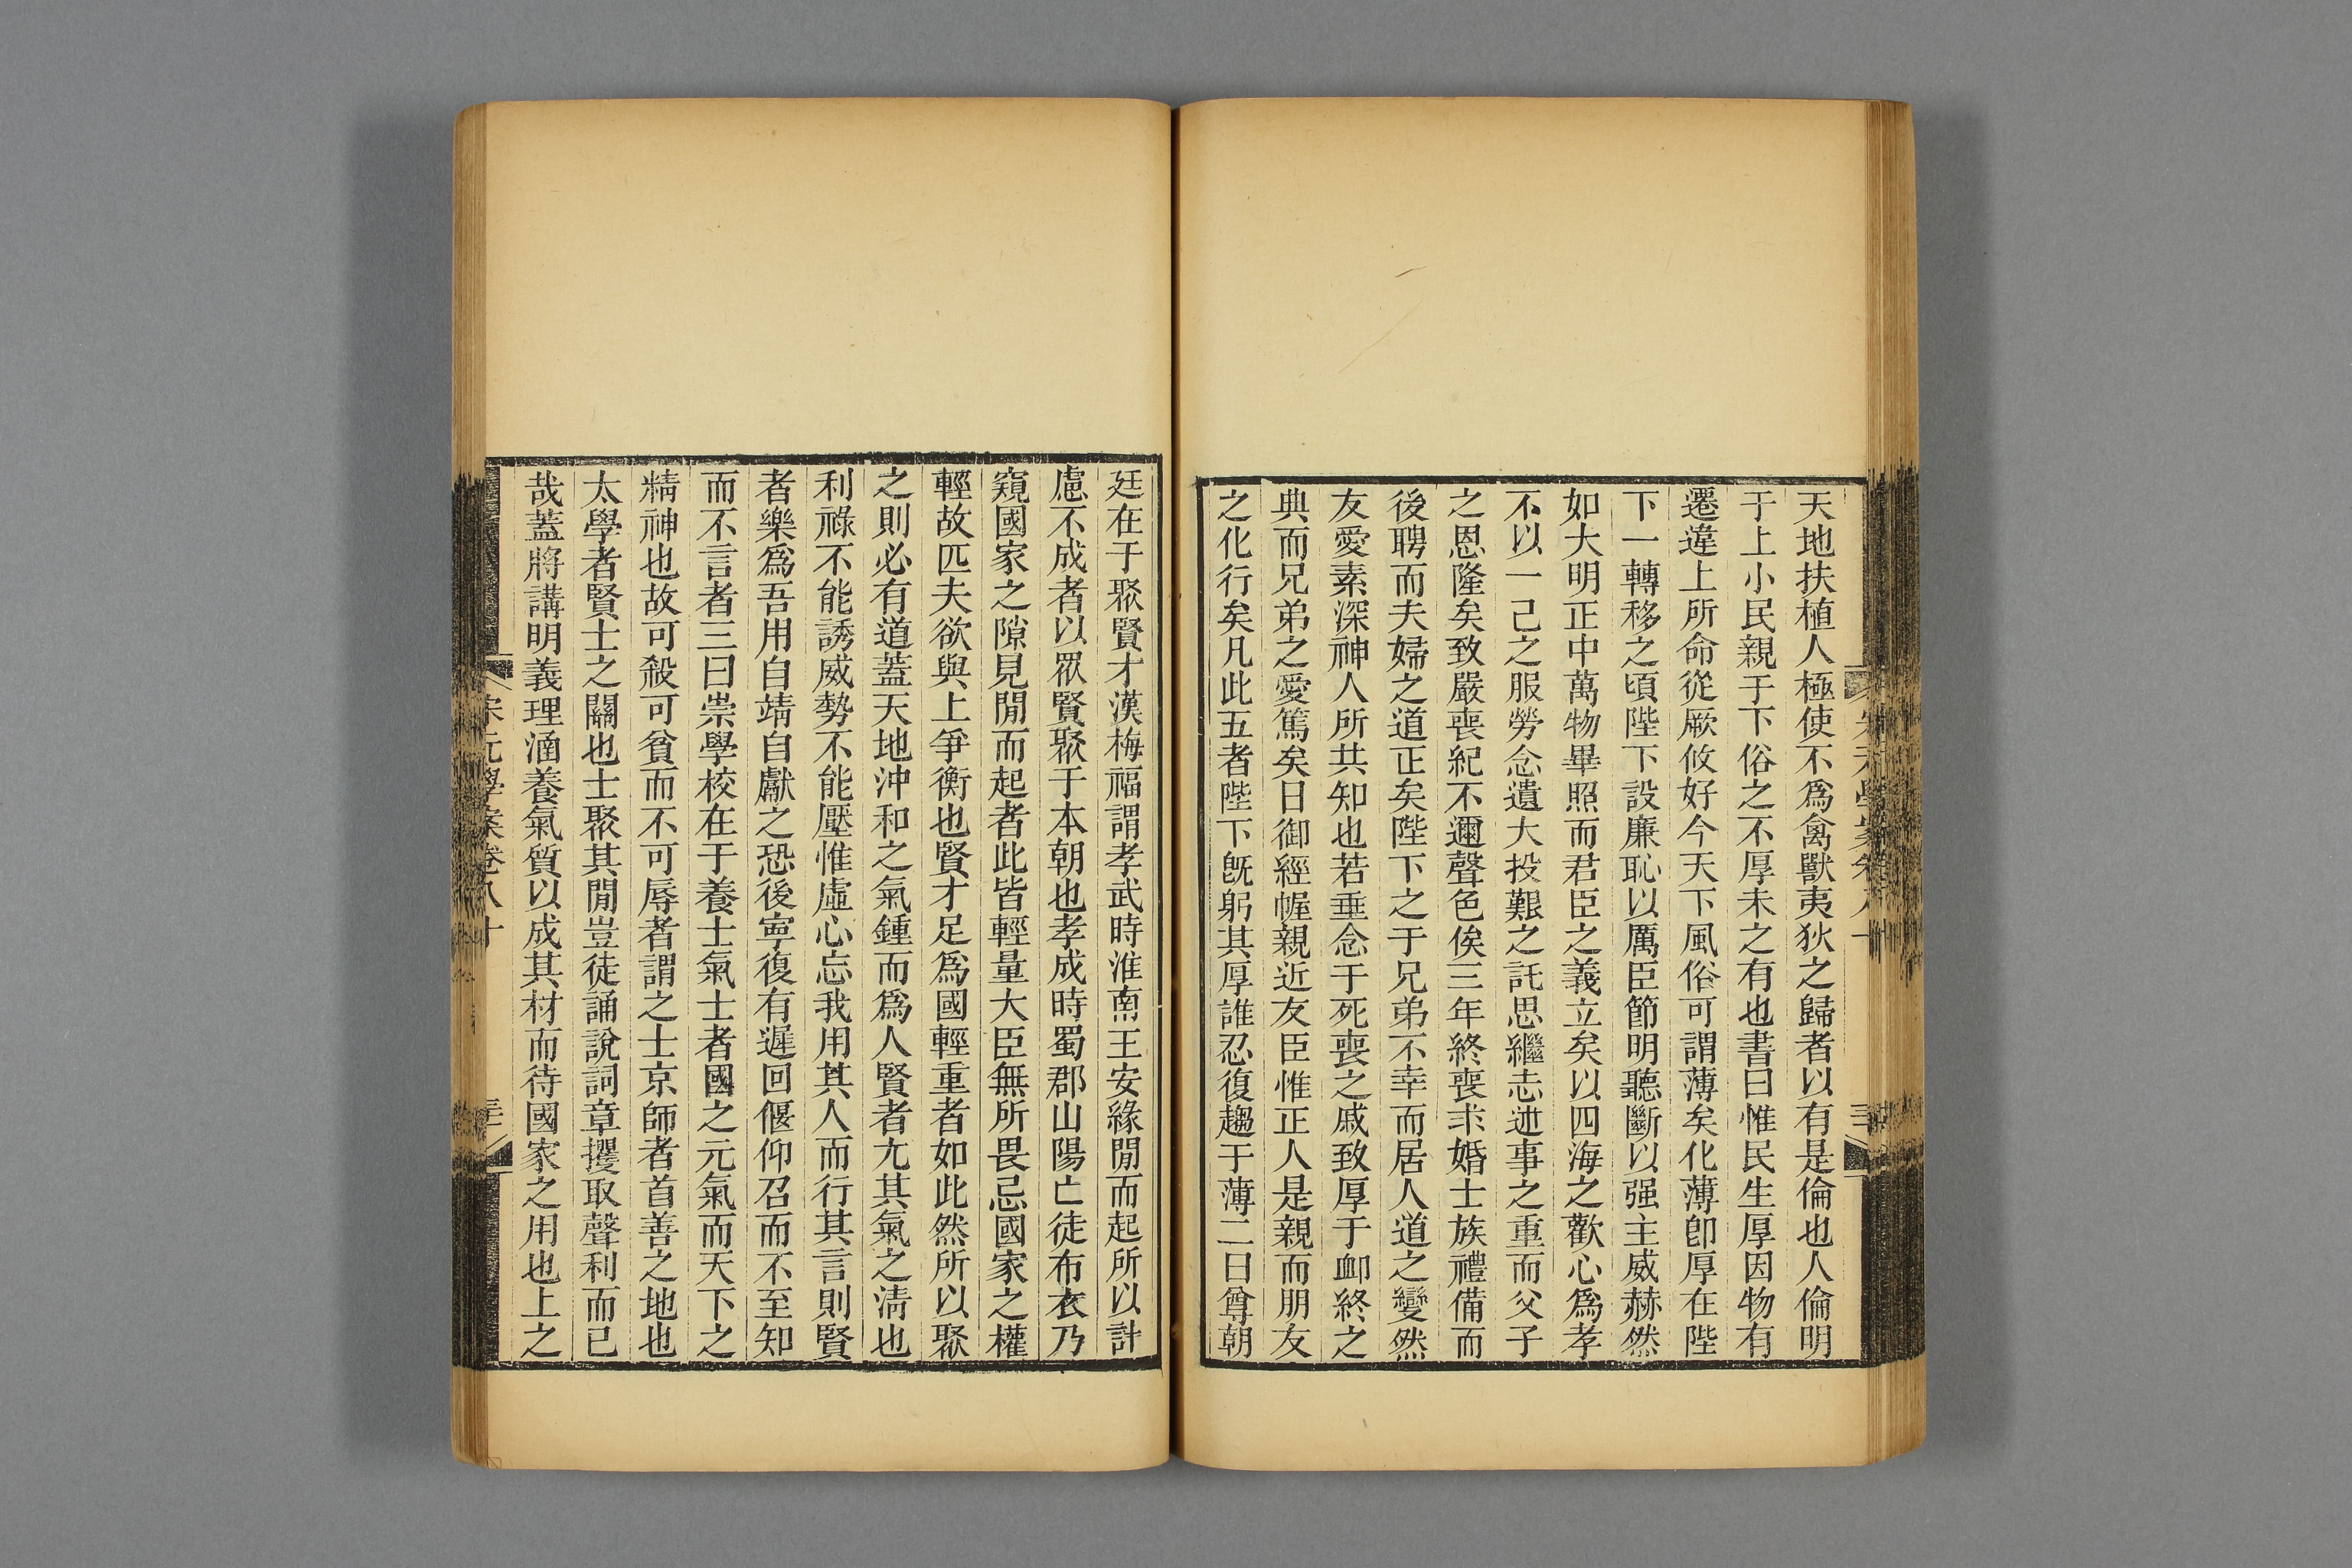 天地扶植人極使不爲禽獸夷狄之歸者以有是倫也人倫明
于上小民親于下俗之不厚未之有也書曰惟民生厚因物有
遷違上所命從厥攸好今天下風俗可謂薄矣化薄卽厚在陛
下一轉移之頃陛下設廉恥以厲臣節明聽斷以强主威赫然
如大明正中萬物畢照而君臣之義立矣以四海之歡心爲孝
不以一己之服勞念遺大投艱之託思繼志述事之重而父子
之恩隆矣致嚴喪紀不邇聲色俟三年終喪求婚士族禮備而
後聘而夫婦之道正矣陛下之于兄弟不幸而居人道之變然
友愛素深神人所共知也若垂念于死喪之戚致厚于卹終之
典而兄弟之愛篤矣日御經幄親近友臣惟正人是親而朋友
之化行矣凡此五者陛下旣躬其厚誰忍復趨于薄二曰尊朝
廷在于聚賢才漢梅福謂孝武時淮南王安緣閒而起所以計
慮不成者以眾賢聚于本朝也孝成時蜀郡山陽亡徒布衣乃
窺國家之隙見閒而起者此皆輕量大臣無所畏忌國家之權
輕故匹夫欲與上爭衡也賢才足爲國輕重者如此然所以聚
之則必有道蓋天地沖和之氣鍾而爲人賢者尤其氣之淸也
利祿不能誘威勢不能壓惟虛心忘我用其人而行其言則賢
者樂爲吾用自靖自獻之恐後寧復有遲回偃仰召而不至知
而不言者三曰崇學校在于養士氣士者國之元氣而天下之
精神也故可殺可貧而不可辱者謂之士京師者首善之地也
太學者賢士之關也士聚其閒豈徒誦說詞章攫取聲利而已
哉蓋將講明義理涵養氣質以成其材而待國家之用也上之
宋元學案卷八十